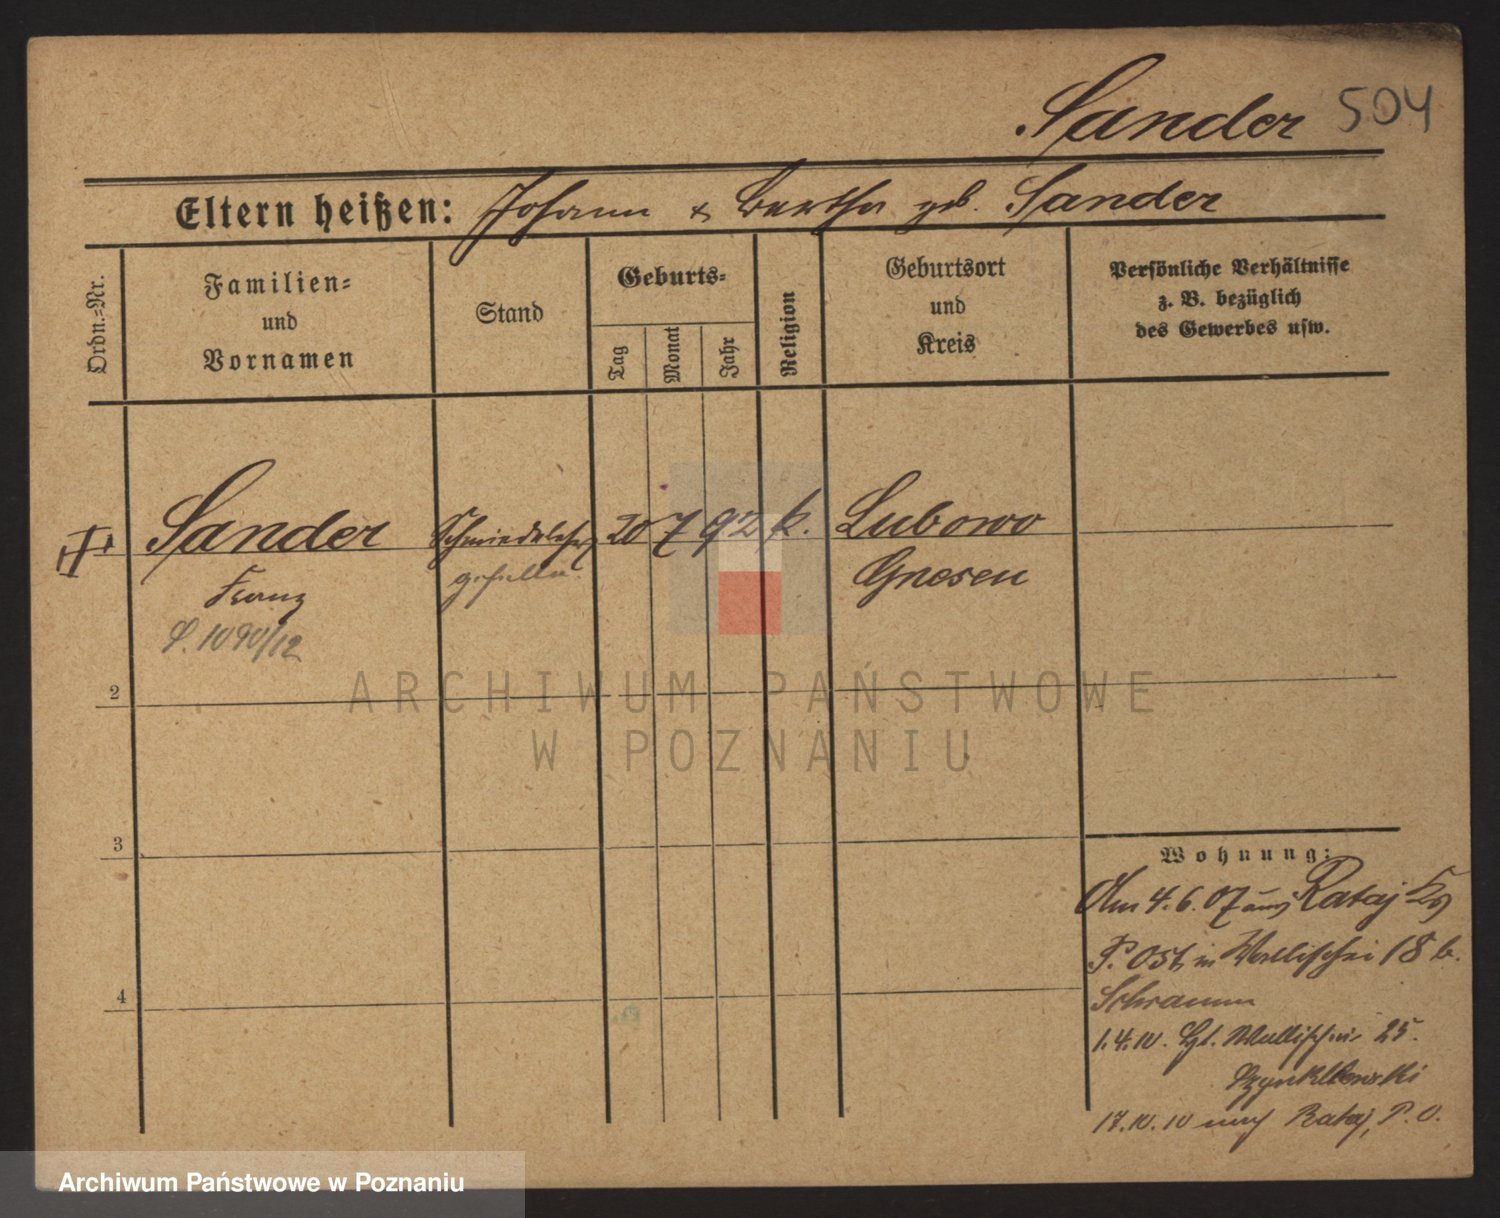 Sander 504
Eltern heißen: Johann & Bertha geb. Sander
Ordn.=Nr.
Familien=
und
Vornamen
Stand
Geburts=
Tag
Monat
Jahr
Religion
Geburtsort
und
Kreis
Persönliche Verhältnisse
z. B. bezüglich
des Gewerbes usw.
Sander Schmiedelehrl 20 7 92 k. Lubowo
Franz geselle Gnesen
S. 1090/12
2
3
4
Wohnung:
Am 4.6.07 aus Rataj
P. Ost, in Wallischei 18 b.
Schramm
1.4.10. Wallischei 25.
17.10.10 nach Rataj, P. O.
ARCHIWUM PAŃSTWOWE
W POZNANIU
Archiwum Państwowe w Poznaniu